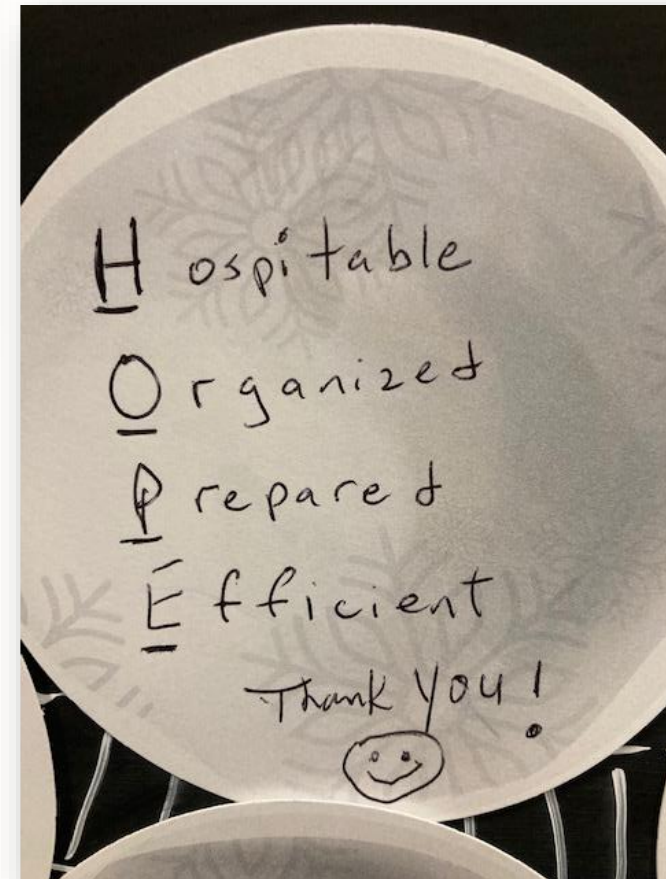 Hospitable
Organized
Prepared
Efficient
Thank you!